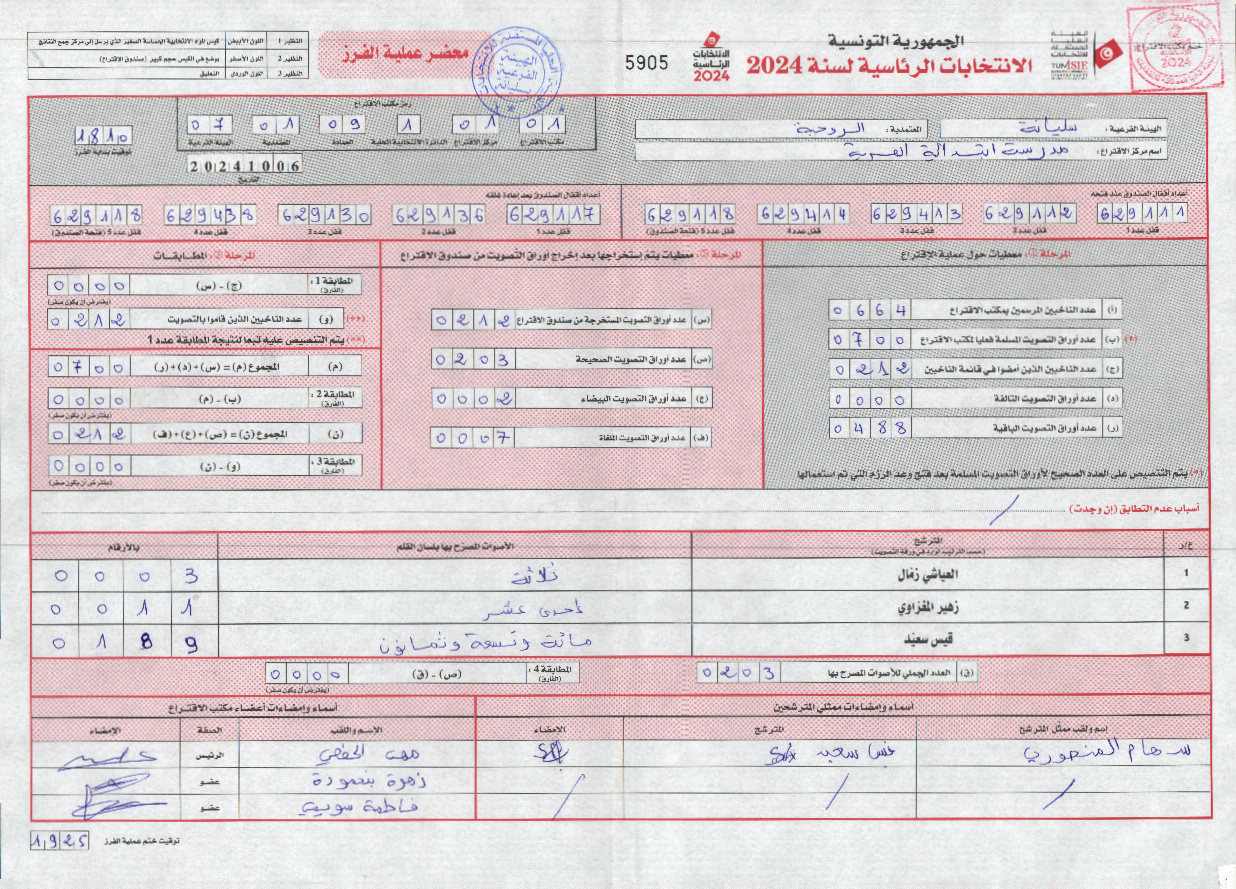 الجمهورية التونسية
الانتخابات الرئاسية لسنة 2024
الانتخابات الرئاسية 2024
5905
محضر عملية الفرز
النظير 1 اللون الأبيض
النظير 2 اللون الأصفر يوضع في الكيس حجم كبير (صندوق الاقتراع)
النظير 3 اللون الوردي التعليق
الهيئة الفرعية: سليانة المعتمدية: الروحية
اسم مركز الاقتراع: مدرسة ابتدائية
رمز مكتب الاقتراع
01 01 1 09 01 07
مكتب الاقتراع مركز الاقتراع الدائرة الانتخابية المحلية العمادة المعتمدية الهيئة الفرعية
1810
توقيت بداية الفرز
20241006
التاريخ
أعداد أقفال الصندوق عند فتحه
629111 629112 629413 629414 629118
قفل عدد 1 قفل عدد 2 قفل عدد 3 قفل عدد 4 قفل عدد 5 (فتحة الصندوق)
أعداد أقفال الصندوق بعد إعادة غلقه
629117 629136 629130 629438 629118
قفل عدد 1 قفل عدد 2 قفل عدد 3 قفل عدد 4 قفل عدد 5 (فتحة الصندوق)
المرحلة ①: معطيات حول عملية الاقتراع
(أ) عدد الناخبين المرسمين بمكتب الاقتراع 0664
(*) (ب) عدد أوراق التصويت المسلمة فعليا لمكتب الاقتراع 0700
(ج) عدد الناخبين الذين أمضوا في قائمة الناخبين 0212
(د) عدد أوراق التصويت التالفة 0000
(ر) عدد أوراق التصويت الباقية 0488
(*) يتم التنصيص على العدد الصحيح لأوراق التصويت المسلمة بعد فتح وعد الرزم التي تم استعمالها
المرحلة ②: معطيات يتم إستخراجها بعد إخراج أوراق التصويت من صندوق الاقتراع
(س) عدد أوراق التصويت المستخرجة من صندوق الاقتراع 0212
(ص) عدد أوراق التصويت الصحيحة 0203
(ع) عدد أوراق التصويت البيضاء 0002
(ف) عدد أوراق التصويت الملغاة 0007
المرحلة ③: المطابقات
المطابقة 1: (الفارق) (ج) - (س) 0000
(يفترض أن يكون صفر)
(**) (و) عدد الناخبين الذين قاموا بالتصويت 0212
(**) يتم التنصيص عليه تبعا لنتيجة المطابقة عدد 1
(م) المجموع (م) = (س)+(د)+(ر) 0700
المطابقة 2: (الفارق) (ب) - (م) 0000
(يفترض أن يكون صفر)
(ن) المجموع (ن) = (ص)+(ع)+(ف) 0212
المطابقة 3: (الفارق) (و) - (ن) 0000
(يفترض أن يكون صفر)
أسباب عدم التطابق (إن وجدت) /
ع/ر المترشح (حسب الترتيب الوارد في ورقة التصويت) الأصوات المصرح بها بلسان القلم بالأرقام
1 العياشي زمّال ثلاثة 0003
2 زهير المغزاوي أحدى عشر 0011
3 قيس سعيّد مائة وتسعة وثمانون 0189
(ق) العدد الجملي للأصوات المصرح بها 0203
المطابقة 4: (الفارق) (ص) - (ق) 0000
(يفترض أن يكون صفر)
أسماء وإمضاءات ممثلي المترشحين
إسم ولقب ممثل المترشح المترشح الإمضاء
سهام المنصوري قيس سعيد
أسماء وإمضاءات أعضاء مكتب الاقتراع
الإسم واللقب الصفة الإمضاء
الرئيس
زهرة بنحمودة عضو
فاطمة عضو
توقيت ختم عملية الفرز 1925